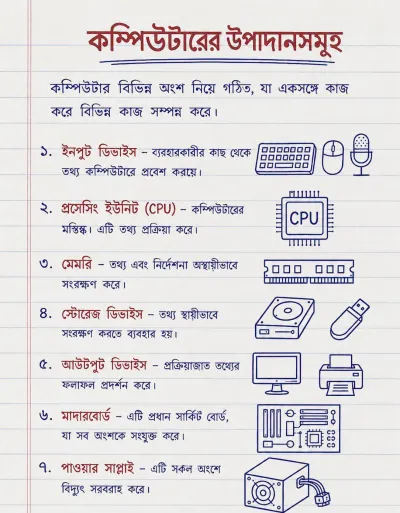 কম্পিউটারের উপাদানসমুহ
কম্পিউটার বিভিন্ন অংশ নিয়ে গঠিত, যা একসঙ্গে কাজ
করে বিভিন্ন কাজ সম্পন্ন করে।
১. ইনপুট ডিভাইস – ব্যবহারকারীর কাছ থেকে
তথ্য কম্পিউটারে প্রবেশ করায়ে।
২. প্রসেসিং ইউনিট (CPU) – কম্পিউটারের
মস্তিষ্ক। এটি তথ্য প্রক্রিয়া করে।
CPU
৩. মেমরি – তথ্য এবং নির্দেশনা অস্থায়ীভাবে
সংরক্ষণ করে।
৪. স্টোরেজ ডিভাইস – তথ্য স্থায়ীভাবে
সংরক্ষণ করতে ব্যবহার হয়।
৫. আউটপুট ডিভাইস – প্রক্রিয়াজাত তথ্যের
ফলাফল প্রদর্শন করে।
৬. মাদারবোর্ড – এটি প্রধান সার্কিট বোর্ড,
যা সব অংশকে সংযুক্ত করে।
৭. পাওয়ার সাপ্লাই – এটি সকল অংশে
বিদ্যুৎ সরবরাহ করে।